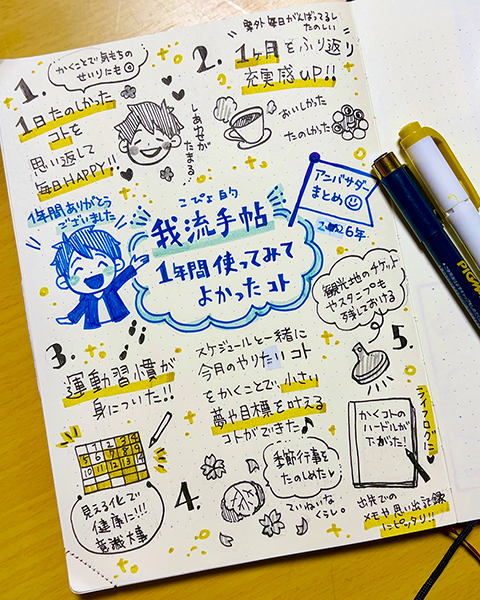 1.
かくことで気もちの
せいりにも
1日たのしかった
コトを
思い返して
毎日HAPPY!!
しあわせが
たまる
2.
案外毎日がんばってるし
たのしい
1ヶ月をふり返り
充実感UP!!
おいしかった
たのしかった
1年間ありがとう
ございました
こぴょ的
我流手帖
1年間使ってみて
よかったコト
アンバサダー
まとめ
2026年
3.
運動習慣が
身についた!!
1 2 3 4
5 6 7 8 9
10 11 12 13 14
見える化で
健康に!!!
意識大事
4.
スケジュールと一緒に
今月のやりたいコト
をかくことで、小さい
夢や目標を叶える
コトができた♪
季節行事を
たのしめた♥
ていねいな
くらし。
5.
観光地のチケット
やスタンプも
残しておける
かくコトの
ハードルが
下がった!
ライフログに♥
出先での
メモや思い出記録
にピッタリ!!
PIGM